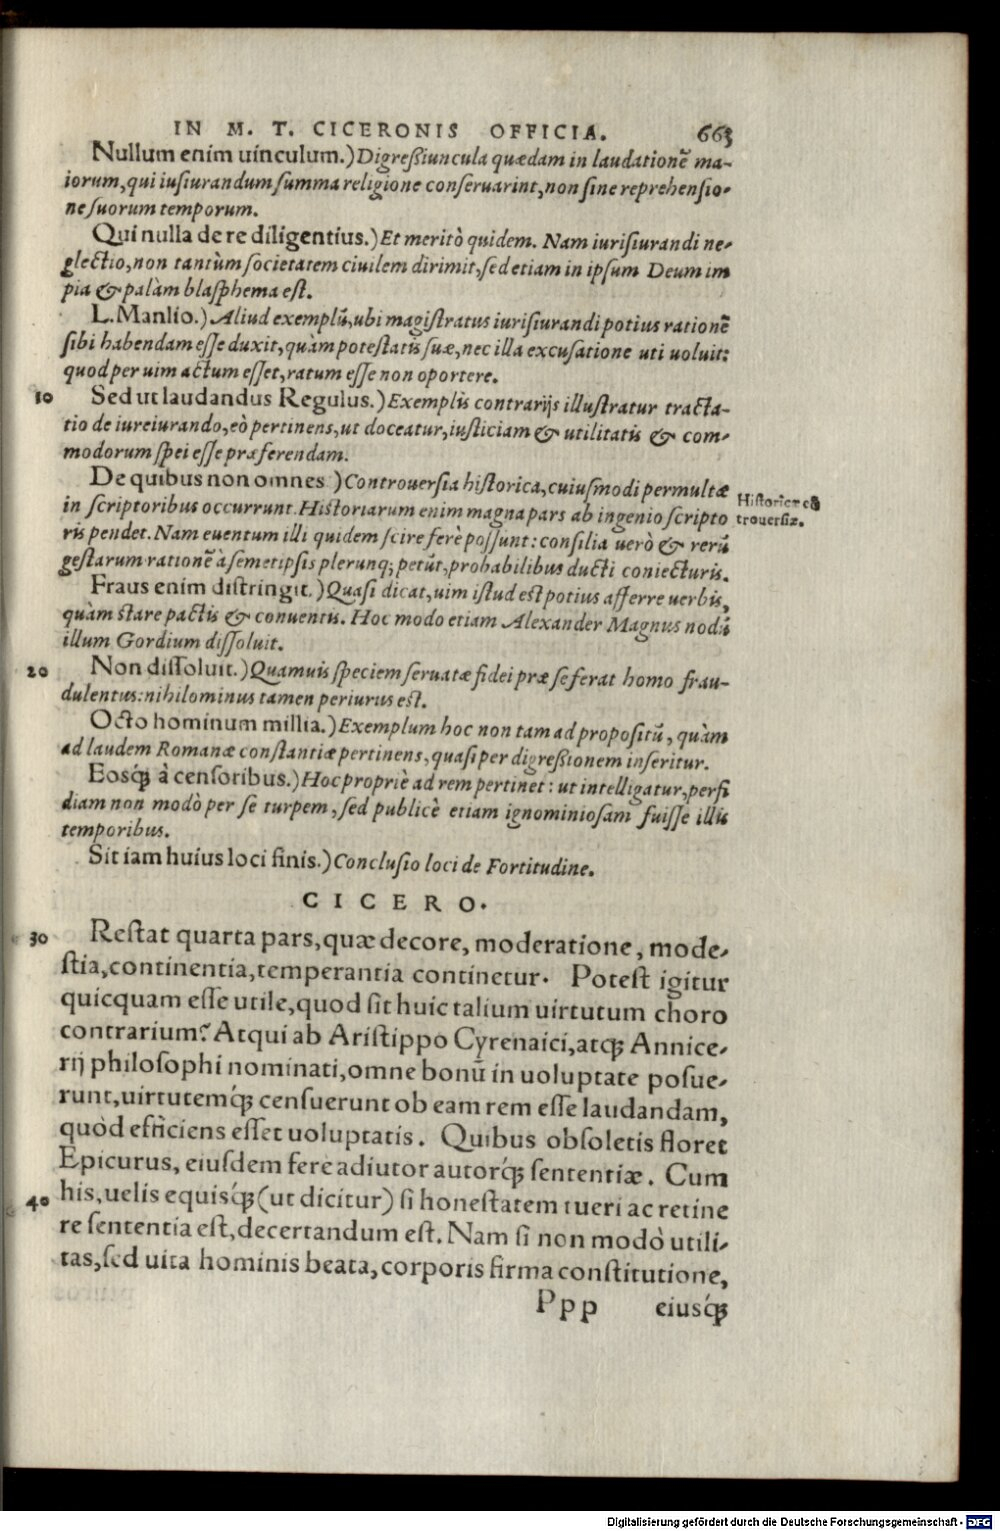 IN M. T. CICERONIS OFFICIA. 663
Nullum enim uinculum.) Digreßiuncula quædam in laudationẽ ma-
iorum, qui iusiurandum summa religione conseruarint, non sine reprehensio-
ne suorum temporum.
Qui nulla de re diligentius.) Et meritò quidem. Nam iurisiurandi ne-
glectio, non tantùm societatem ciuilem dirimit, sed etiam in ipsum Deum im
pia & palàm blasphema est.
L. Manlio.) Aliud exemplũ, ubi magistratus iurisiurandi potius rationẽ
sibi habendam esse duxit, quàm potestatis suæ, nec illa excusatione uti uoluit:
quod per uim actum esset, ratum esse non oportere.
10 Sed ut laudandus Regulus.) Exemplis contrarijs illustratur tracta-
tio de iureiurando, eò pertinens, ut doceatur, iusticiam & utilitatis & com-
modorum spei esse præferendam.
De quibus non omnes ) Controuersia historica, cuiusmodi permultæ
in scriptoribus occurrunt. Historiarum enim magna pars ab ingenio scripto
ris pendet. Nam euentum illi quidem scire ferè possunt: consilia uerò & rerũ
gestarum rationẽ à semetipsis plerunq; petũt, probabilibus ducti coniecturis.
Historicæ cõ
trouersiæ.
Fraus enim distringit.) Quasi dicat, uim istud est potius afferre uerbis,
quàm stare pactis & conuentis. Hoc modo etiam Alexander Magnus nodũ
illum Gordium dissoluit.
20 Non dissoluit.) Quamuis speciem seruatæ fidei præ se ferat homo frau-
dulentus: nihilominus tamen periurus est.
Octo hominum millia.) Exemplum hoc non tam ad propositũ, quàm
ad laudem Romanæ constantiæ pertinens, quasi per digreßionem inseritur.
Eosq́; à censoribus.) Hoc propriè ad rem pertinet: ut intelligatur, perfi
diam non modò per se turpem, sed publicè etiam ignominiosam fuisse illis
temporibus.
Sit iam huius loci finis.) Conclusio loci de Fortitudine.
CICERO.
30 Restat quarta pars, quæ decore, moderatione, mode-
stia, continentia, temperantia continetur. Potest igitur
quicquam esse utile, quod sit huic talium uirtutum choro
contrarium? Atqui ab Aristippo Cyrenaici, atq; Annice-
rij philosophi nominati, omne bonũ in uoluptate posue-
runt, uirtutemq́; censuerunt ob eam rem esse laudandam,
quòd efficiens esset uoluptatis. Quibus obsoletis floret
Epicurus, eiusdem fere adiutor autorq́; sententiæ. Cum
40 his, uelis equisq́; (ut dicitur) si honestatem tueri ac retine
re sententia est, decertandum est. Nam si non modò utili-
tas, sed uita hominis beata, corporis firma constitutione,
Ppp eiusq́;
Digitalisierung gefördert durch die Deutsche Forschungsgemeinschaft - DFG